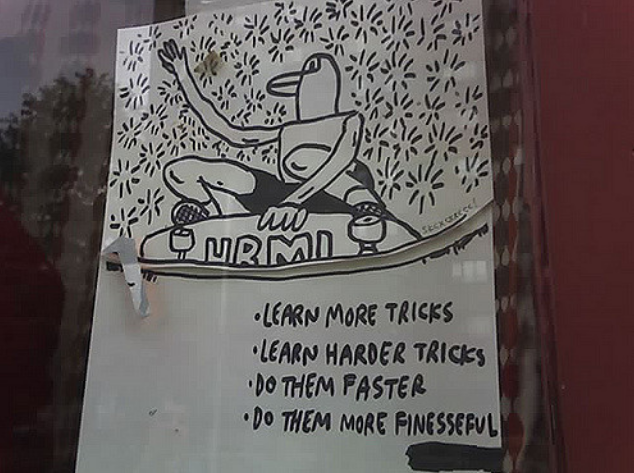 URMI
•LEARN MORE TRICKS
•LEARN HARDER TRICKS
•DO THEM FASTER
•DO THEM MORE FINESSEFUL